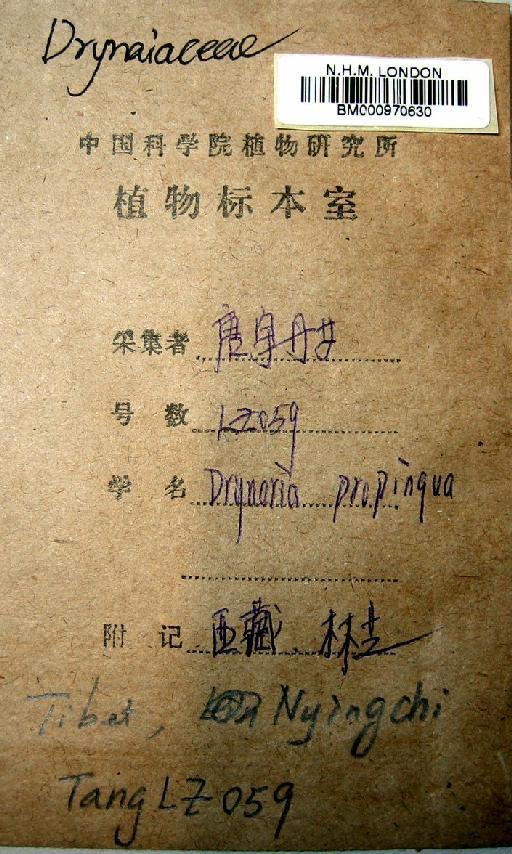 Drynaiaceae
N.H.M. LONDON
BM000970630
中国科学院植物研究所
植物标本室
采集者 唐宗丹
号 数 LZ059
学 名 Drynaria propinqua
附 记 西藏、林芝
Tibet, Nyingchi
Tang LZ 059